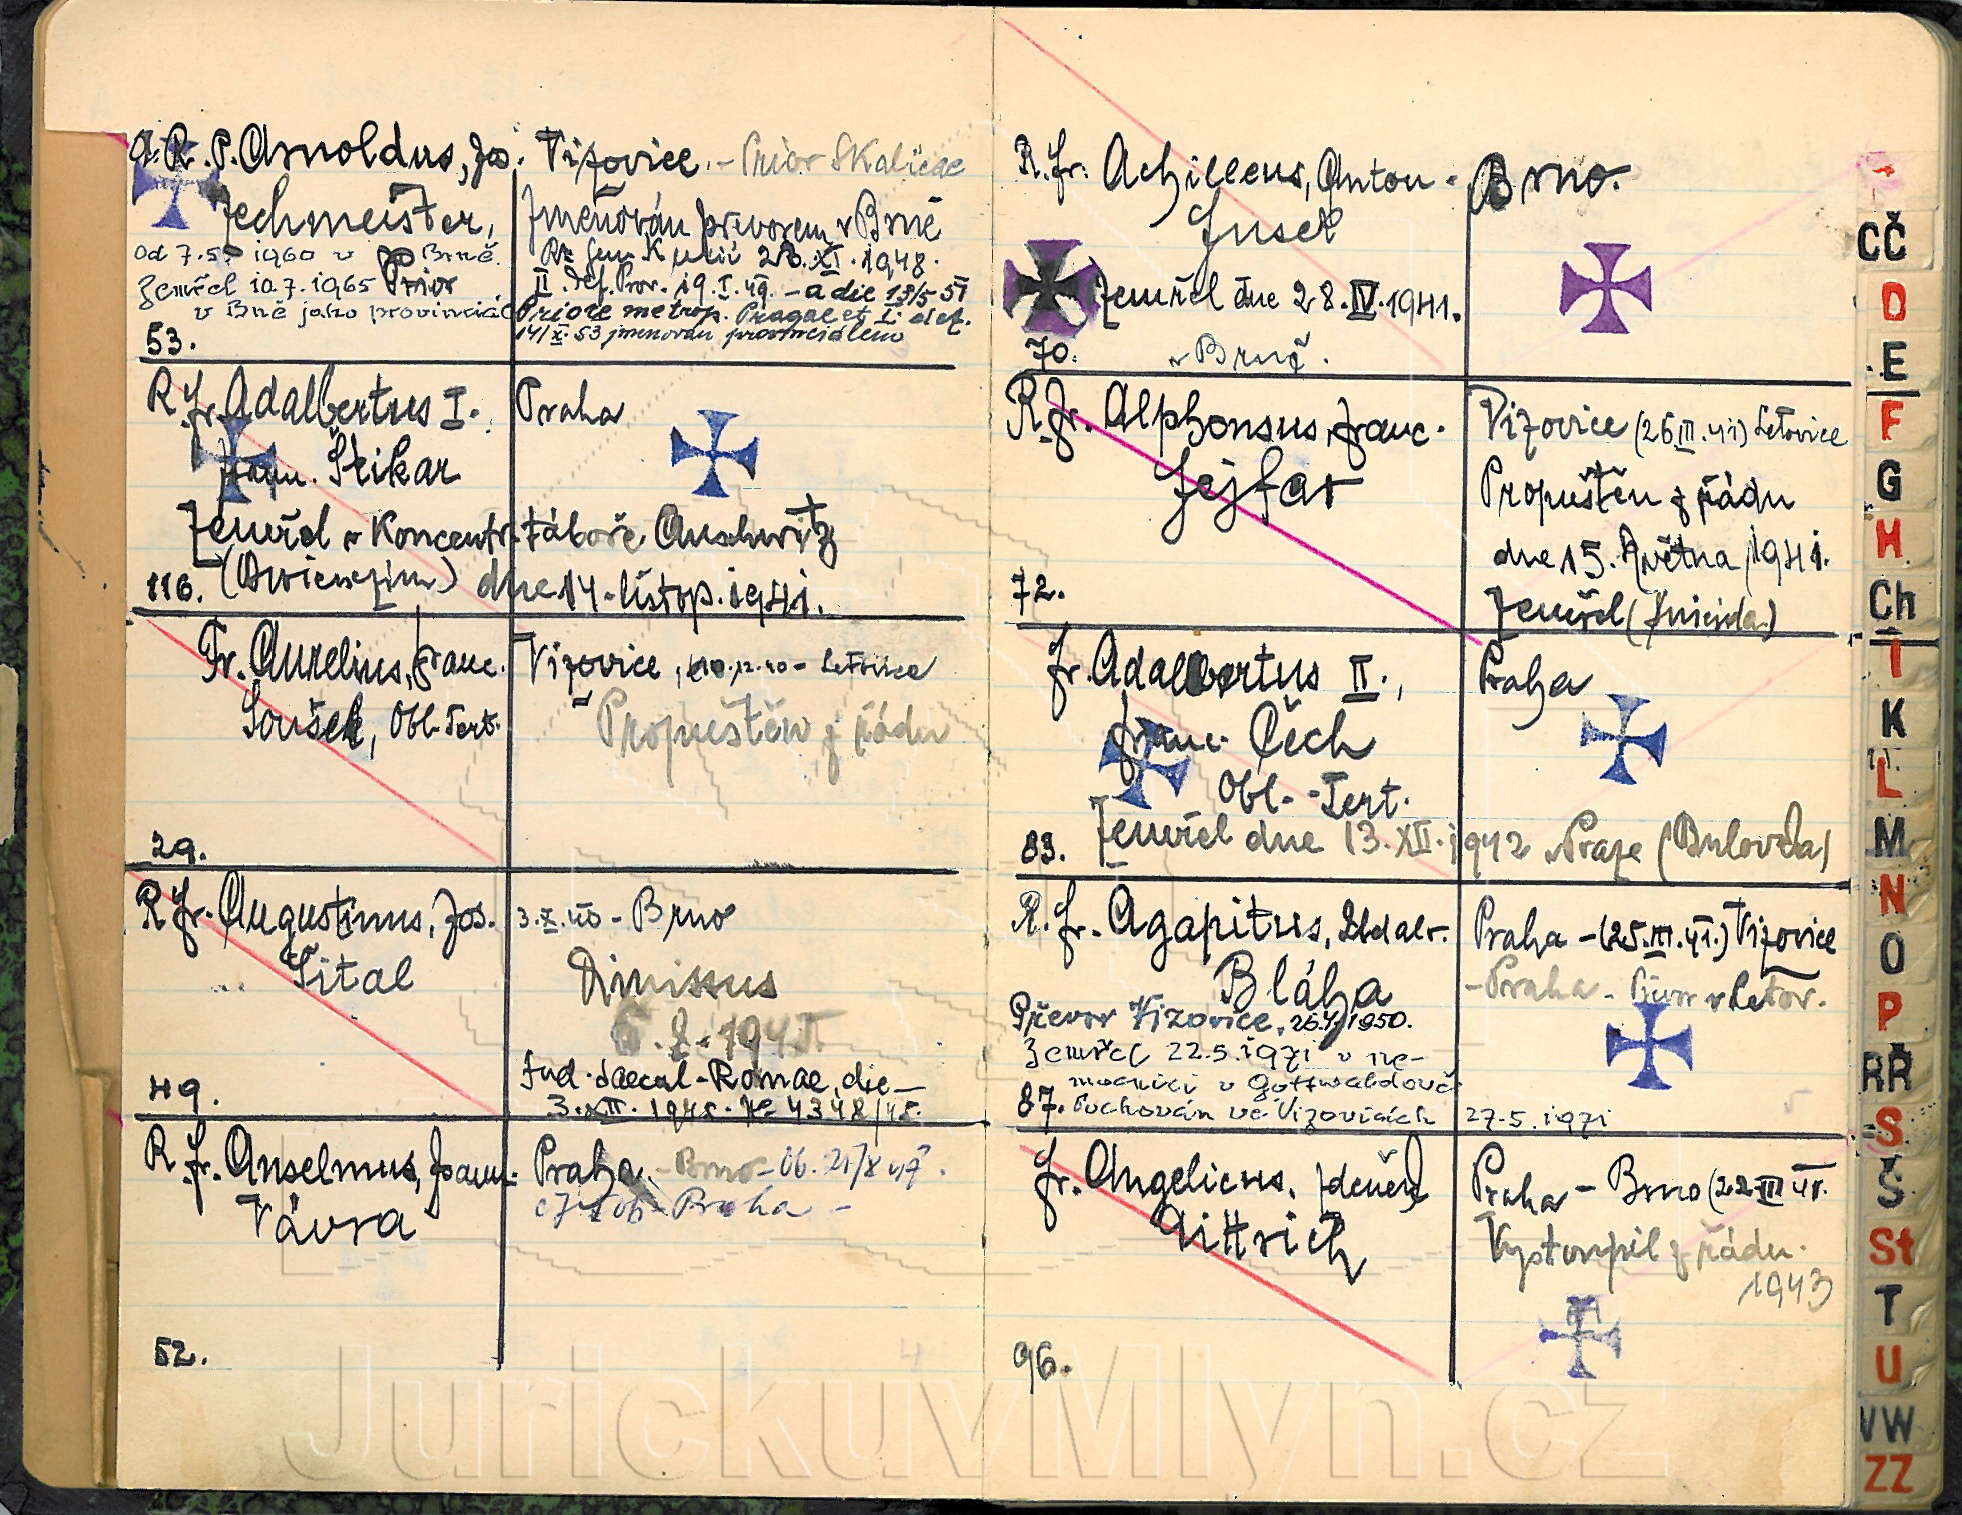 A. R. P. Arnoldus, Jos. Vizovice. - Prior Skalicae
Zechmeister, Jmenován převorem v Brně
od 7.5. 1960 v Brně. 23. XI. 1948.
Zemřel 10.7.1965 Prior II. Def. Prov. 19. I. 49. - a die 13/5 51
v Brně jako provinciál Priore metrop. Pragae et I. def.
53. 14/X. 53 jmenován provinciálem
R. Fr. Adalbertus I. Praha
Štikar
Zemřel v Koncentr. táboře Auschwitz
116. (Oswienczim) dne 14. listop. 1941.
Fr. Aurelius, Franc. Vizovice, 10.12.40 - Letovice
Soušek, Obl. Tert. Propuštěn z řádu
29.
R. Fr. Augustinus, Jos. 3. X. 40 - Brno
Šital Dimissus
Ind. saecul - Romae, die
49. 3. XII. 1945. No 4348/45.
R. Fr. Anselmus, Joann. Praha - Brno - 21/8 47.
Vávra Praha -
52.
R. Fr. Achilleus, Anton. Brno.
Jusek
Zemřel dne 28. IV. 1941.
70. v Brně.
R. Fr. Alphonsus, Franc. Vizovice (26. III. 41) Letovice
Zejfar Propuštěn z řádu
dne 15. května 1941.
72. Zemřel (suicida)
Fr. Adalbertus II., Praha
Franc. Čech
Obl. - Tert.
83. Zemřel dne 13. XII. 1942 v Praze (Bulovka)
R. Fr. Agapitus, Praha - (25. III. 41.) Vizovice
Bláha - Praha - Prior v Letov.
Převor Vizovice, 1950.
Zemřel 22.5.1971 v ne-
mocnici v Gottwaldově
87. Pochován ve Vizovicích 27.5.1971
Fr. Angelicus, Zdeněk Praha - Brno (22 III 41.
Dittrich Vystoupil z řádu.
1943
96.
CČ
D
E
F
G
H
Ch
I
K
L
M
N
O
P
RŘ
S
Š
St
T
U
VW
ZŽ
JurickuvMlyn.cz